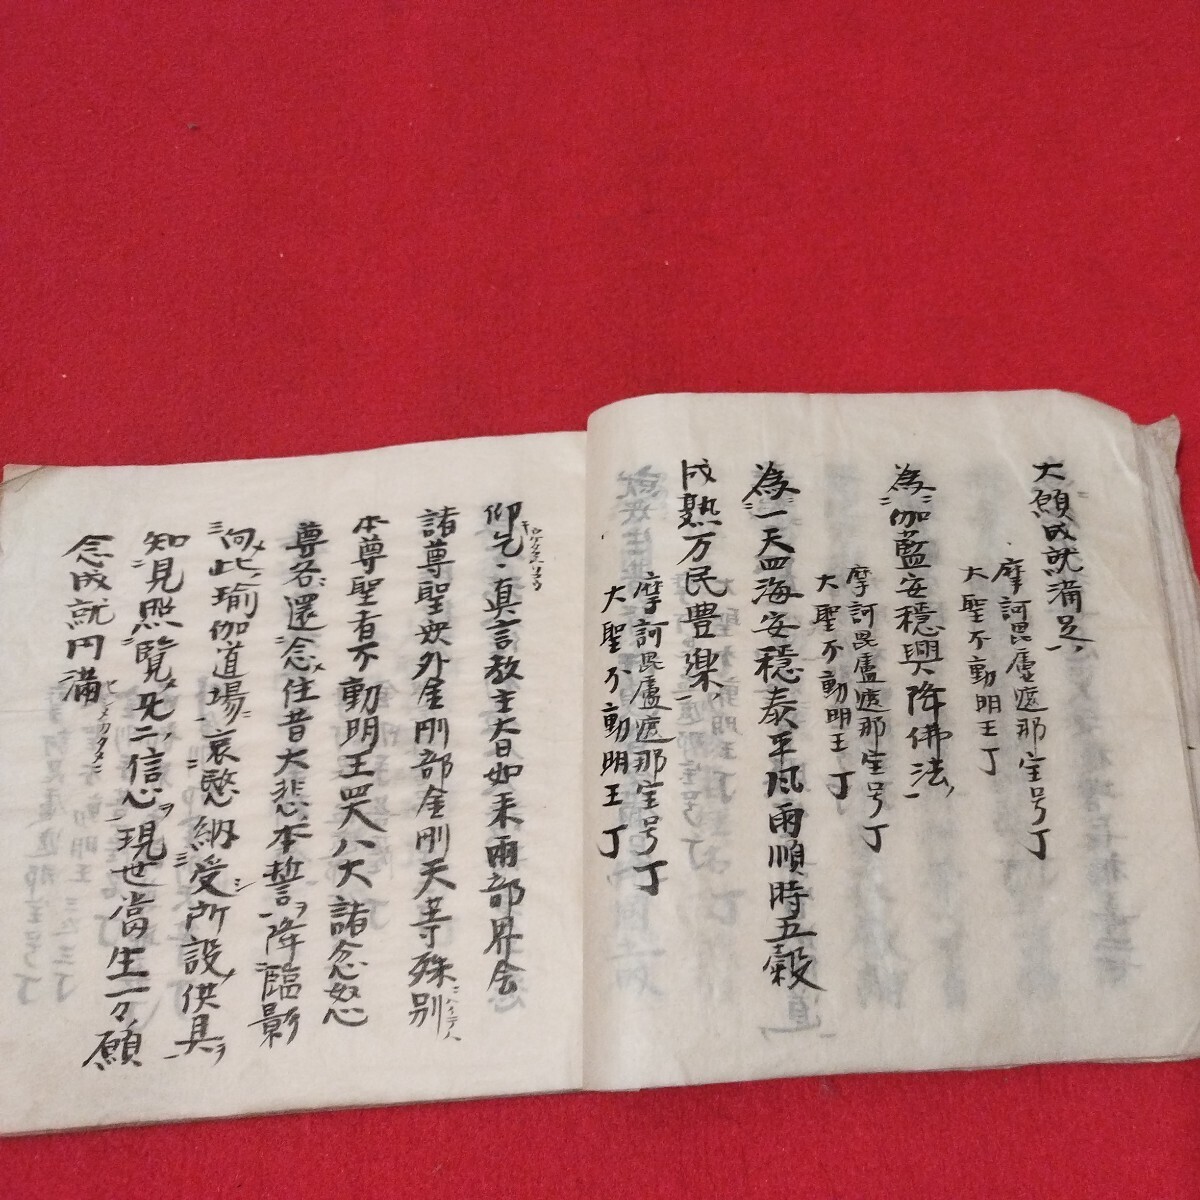 大願成就満足
摩訶毘盧遮那宝号丁
大聖不動明王丁
為伽藍安穏興降佛法
摩訶毘盧遮那宝号丁
大聖不動明王丁
為一天四海安穏泰平風雨順時五穀
成熟万民豊樂
摩訶毘盧遮那宝号丁
大聖不動明王丁
仰乞真言教主大日如来両部界会
諸尊聖衆外金剛部金剛天等殊別
本尊聖者不動明王四大八大諸忿怒
尊各還念住昔大悲本誓降臨影
向此瑜伽道場哀愍納受所設供具
知見照覧无二信心現世當生一々願
念成就円満